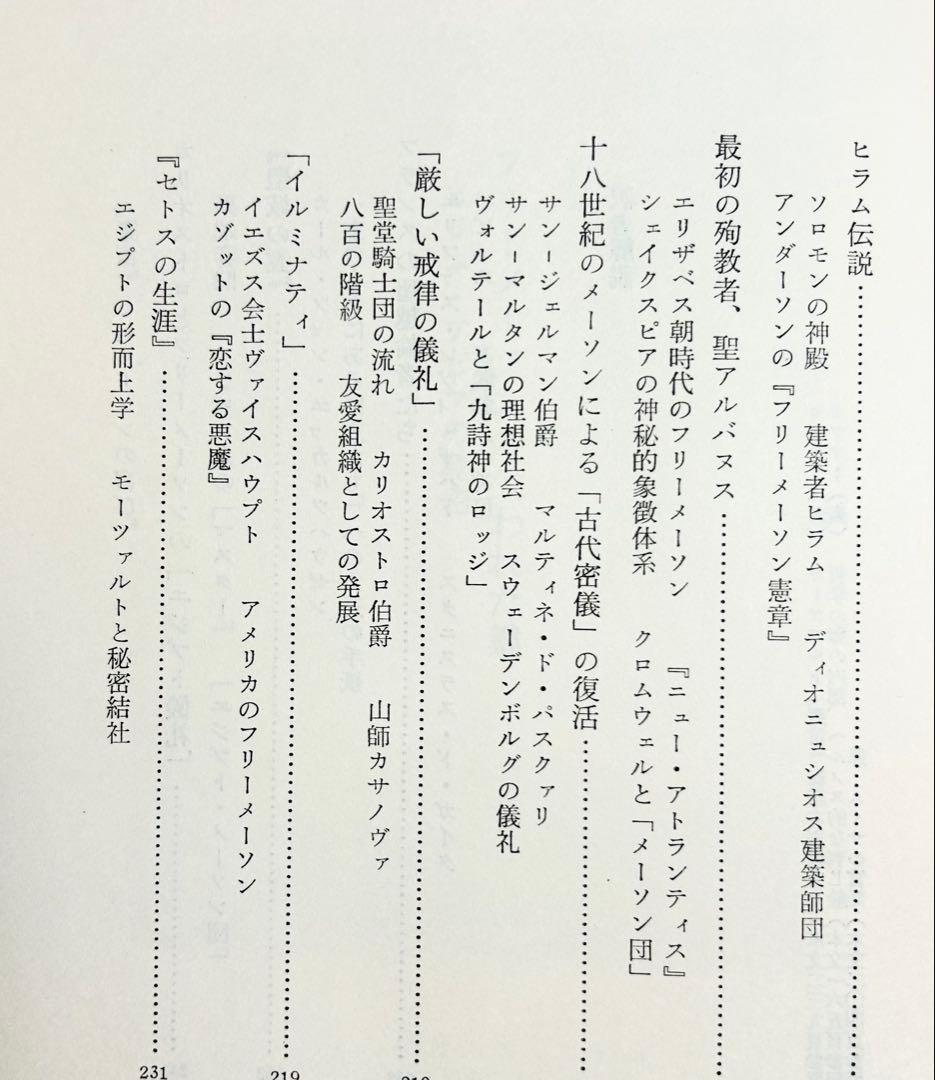 ヒラム伝説……………………
ソロモンの神殿　建築者ヒラム　ディオニュシオス建築師団
アンダーソンの『フリーメーソン憲章』
最初の殉教者、聖アルバヌス……………………
エリザベス朝時代のフリーメーソン　『ニュー・アトランティス』
シェイクスピアの神秘的象徴体系　クロムウェルと「メーソン団」
十八世紀のメーソンによる「古代密儀」の復活……………………
サン－ジェルマン伯爵　マルティネ・ド・パスクァリ
サン－マルタンの理想社会　スウェーデンボルグの儀礼
ヴォルテールと「九詩神のロッジ」
「厳しい戒律の儀礼」……………………
聖堂騎士団の流れ　カリオストロ伯爵　山師カサノヴァ
八百の階級　友愛組織としての発展
「イルミナティ」……………………219
イエズス会士ヴァイスハウプト　アメリカのフリーメーソン
カゾットの『恋する悪魔』
『セトスの生涯』……………………231
エジプトの形而上学　モーツァルトと秘密結社